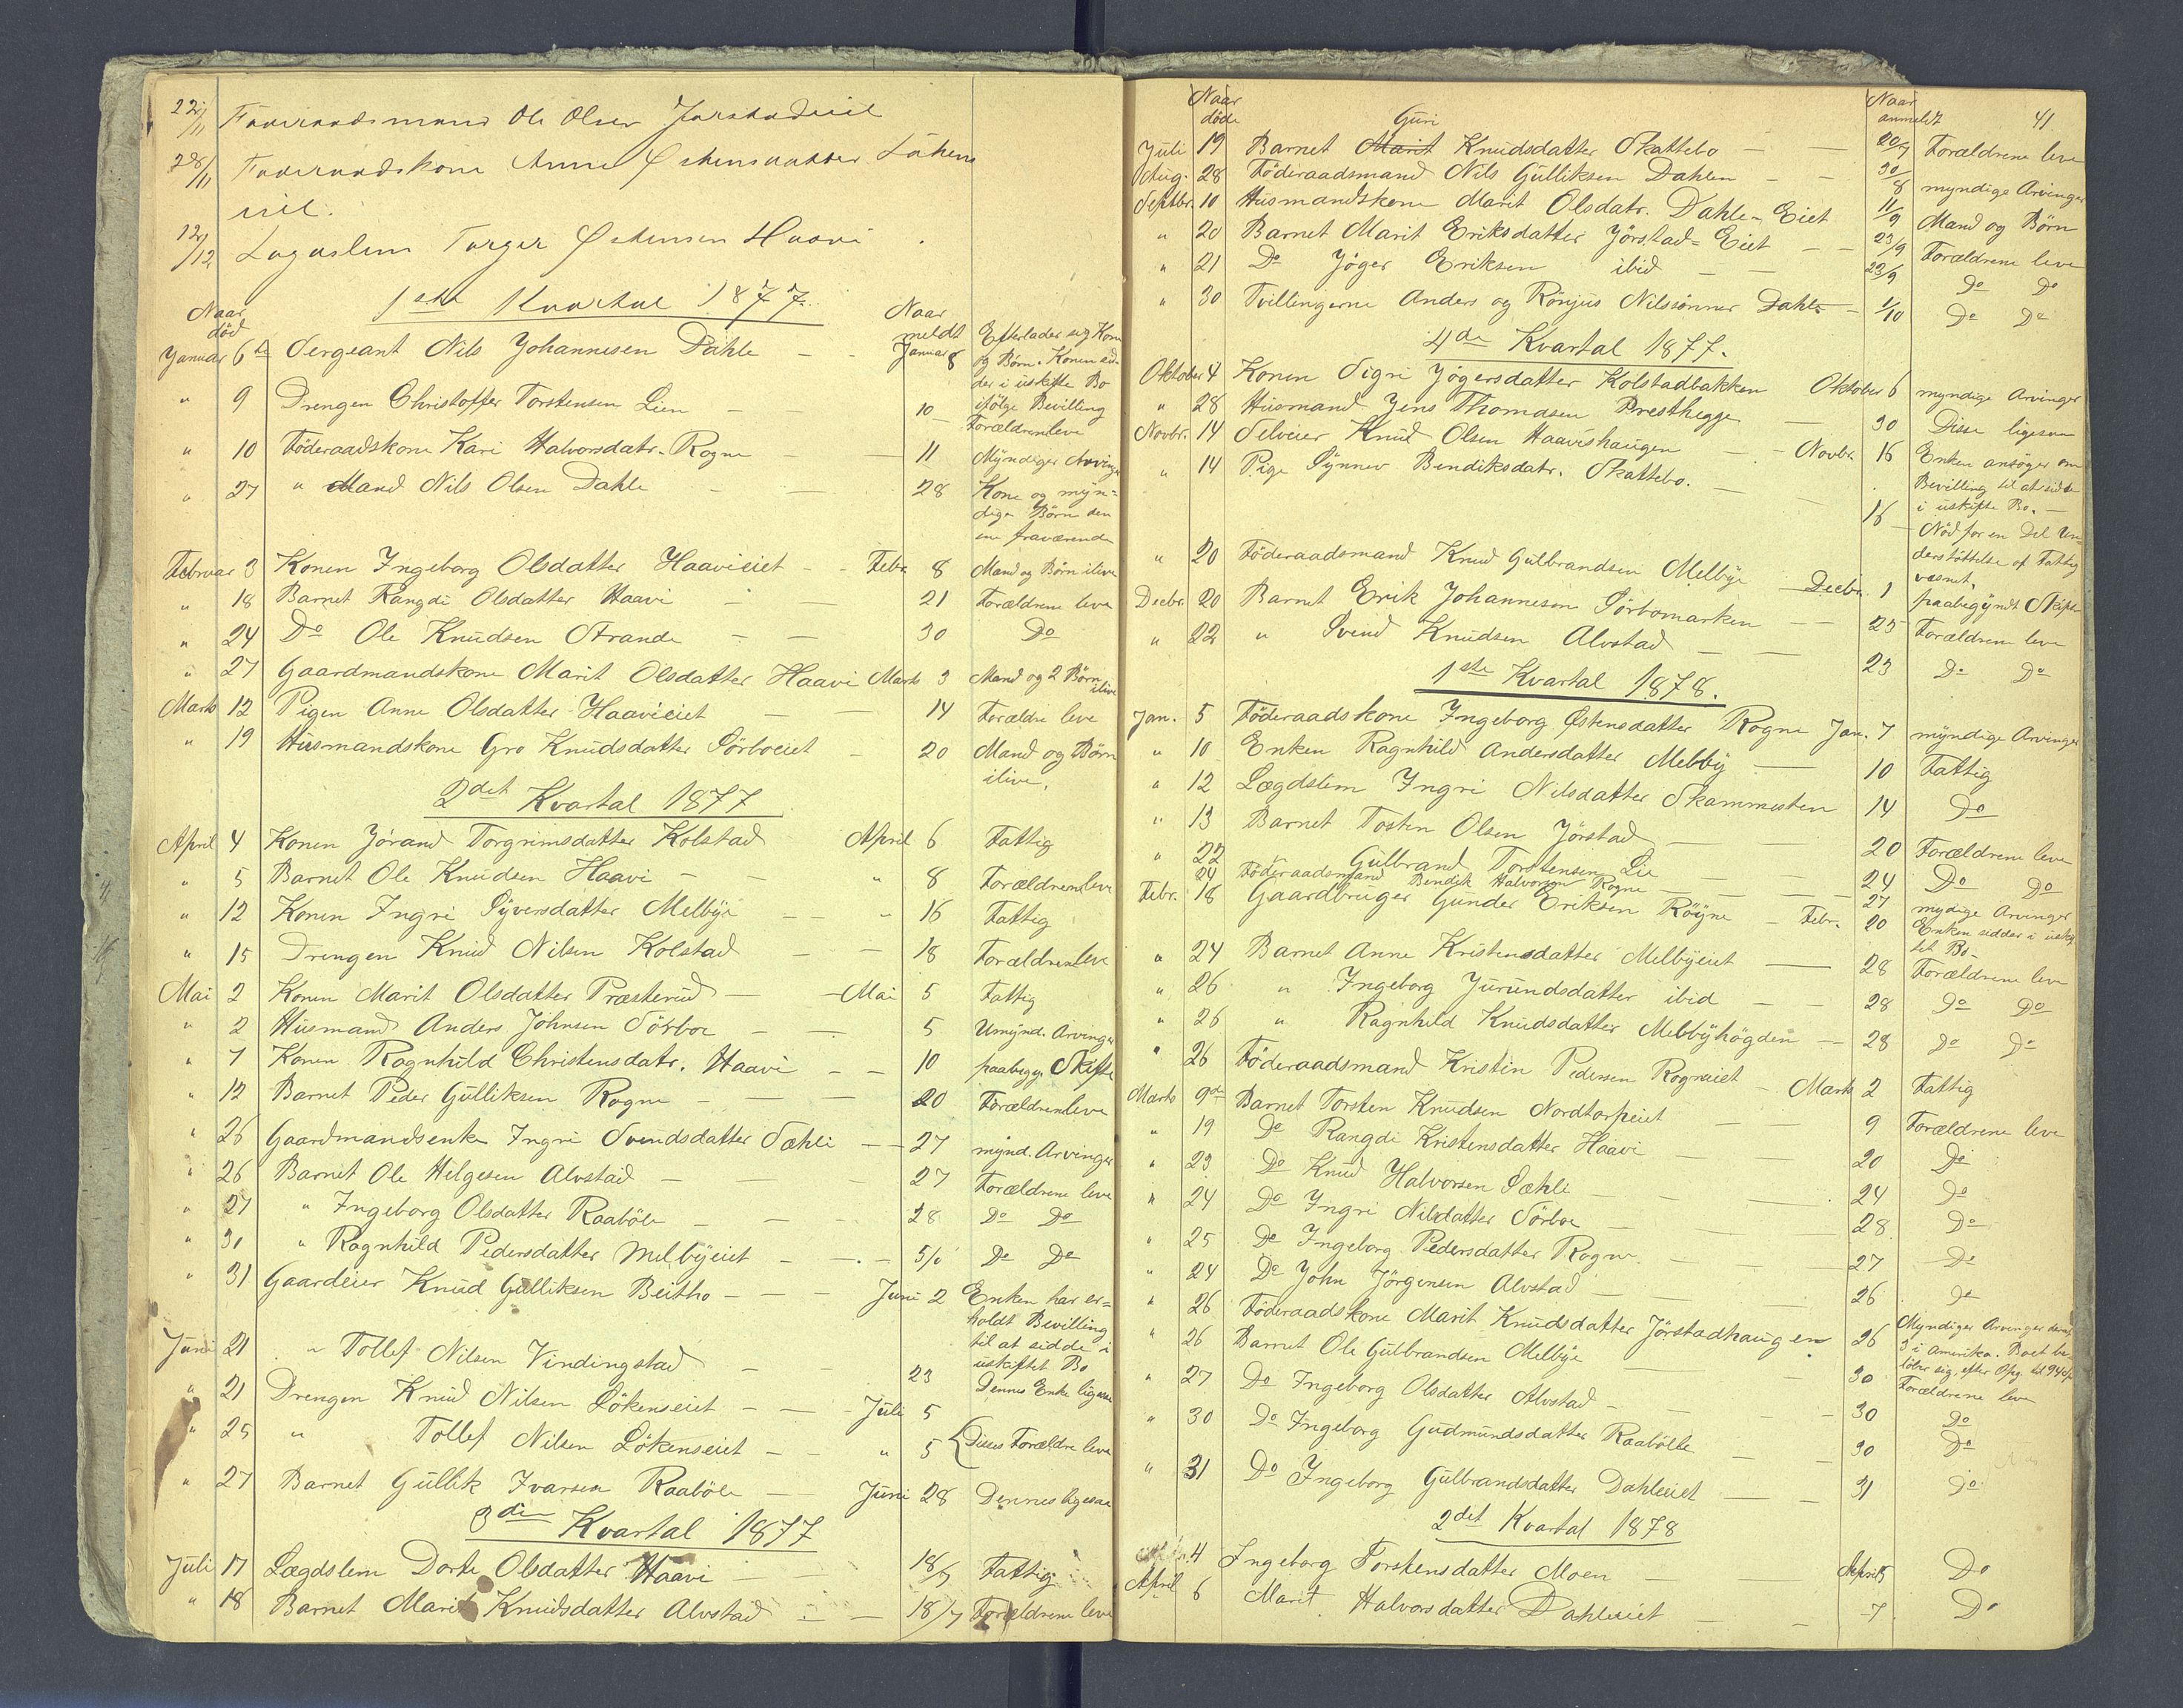 22/11 Føderaadsmand Ole Olsen Jørstadeiet
28/11 Føderaadskone Anne Østensdatter Løkens
eiet.
12/12 Lægdslem Torger Østensen Haavi
1ste Kvartal 1877.
Naar død
Naar meldt
Januar 6te Sergeant Nils Johannesen Dahle – Januar 8 Efterlader sig Kone
og Børn. Konen sid-
der i uskifte Bo
ifølge Bevilling
" 9 Drengen Christoffer Torstensen Lien – 10 – Forældrene leve
" 10 Föderaadskone Kari Halvorsdatr. Rogne – 11 Myndiger Arvinger
" 27 " Mand Nils Olsen Dahle – 28 Kone og myn=
dige Børn den
ene fraværende
Februar 3 Konen Ingeborg Olsdatter Haavieiet – Febr. 8 Mand og Børn ilive
" 18 Barnet Rangdi Olsdatter Haavi – 21 Forældrene leve
" 24 Do Ole Knudsen Strande – 30 Do
" 27 Gaardmandskone Marit Olsdatter Haavi Marts 3 Mand og 2 Børn ilive
Marts 12 Pigen Anne Olsdatter Haavieiet – 14 Forældre leve
" 19 Husmandskone Gro Knudsdatter Sörboeiet – 20 Mand og Børn
ilive.
2det Kvartal 1877
April 4 Konen Jörand Torgrimsdatter Kolstad April 6 Fattig
" 5 Barnet Ole Knudsen Haavi – " 8 Forældrene leve
" 12 Konen Ingri Syversdatter Melbye – " 16 Fattig
" 15 Drengen Knud Nilsen Kolstad – 18 Forældrene leve
Mai 2 Konen Marit Olsdatter Præsterud – Mai 5 Fattig
" 2 Husmand Anders Johnsen Sörboe – 5 Umynd. Arvinger
" 7 Konen Ragnhild Christensdatr. Haavi – 10 paabegy. Skifte
" 12 Barnet Peder Gulliksen Rogne – 20 Forældrene leve
" 26 Gaardmandsenke Ingri Svendsdatter Sæhli – 27 mynd. Arvinger
" 26 Barnet Ole Helgesen Alvstad – 27 Forældrene leve
" 27 " Ingeborg Olsdatter Raaböle – 28 Do Do
" 30 " Ragnhild Pedersdatter Melbyeiet – 5/6 Do Do
" 31 Gaardeier Knud Gulliksen Beitho – Juni 2 Enken har er=
holdt Bevilling
til at sidde i
uskiftet Bo
Juni 21 " Tollef Nilsen Vindingstad – 23 Dennes Enke ligesaa
" 21 Drengen Knud Nilsen Lökenseiet – Juli 5
" 25 " Tollef Nilsen Lökenseiet – " 5 Disses Forældre leve
" 27 Barnet Gullik Ivarsen Raaböle – Juni 28 Dennes ligesaa
3die Kvartal 1877
Juli 17 Lægdslem Dorte Olsdatter Haavi 18/7 Fattig
" 18 Barnet Marit Knudsdatter Alvstad – 18/7 Forældrene leve
Naar døde
Naar anmeldt
41.
Guri
Juli 19 Barnet Marit Knudsdatter Skattebo – 20/7 Forældrene leve
Aug. 28 Föderaadsmand Nils Gulliksen Dahlen – 30/8 myndige Arvinger
Septbr. 10 Husmandskone Marit Olsdatr. Dahle-Eiet 11/9 Mand og Börn
" 20 Barnet Marit Eriksdatter Jörstad=Eiet – 23/9 Forældrene leve
" 21 Do Jöger Eriksen ibid – 23/9 Do Do
" 30 Tvillingerne Anders og Rönjus Nilssönner Dahle – 1/10 Do Do
4de Kvartal 1877.
Oktober 4 Konen Sigri Jögersdatter Kolstadbakken Oktober 6 myndige Arvinger
" 28 Husmand Jens Thomasen Presthegge 30 Disse ligesaa
Novbr. 14 Selveier Knud Olsen Haavishaugen – Novbr. 16 Enken ansøger om
Bevilling til at sidde
i uskifte Bo. –
" 14 Pige Synnev Bendiksdatr. Skattebo. – 16 – Nöd for en Del Un-
derstöttelse af Fattig
væsnet.
" 20 Föderaadsmand Knud Gulbrandsen Melbye – Decbr. 1 paabegyndt Skifte
Decbr. 20 Barnet Erik Johannesen Sörbomarken – 25 Forældrene leve
" 22 " Svend Knudsen Alvstad – 23 Do Do
1ste Kvartal 1878.
Jan. 5 Föderaadskone Ingeborg Østensdatter Rogne Jan. 7 myndige Arvinger
" 10 Enken Ragnhild Andersdatter Melby – 10 Fattig
" 12 Lægdslem Ingri Nilsdatter Skammesten 14 Do
" 13 Barnet Tosten Olsen Jörstad – 20 Forældrene leve
" 22 Gulbrand Torstensen Lie – 24 Do Do
24 Föderaadsmand Bendik Halvorsen Rogne – 27 mydige Arvinger
Febr. 18 Gaardbruger Gunder Eriksen Röyne – Febr. 20 Enken sidder i uskif
tet Bo –
" 24 Barnet Anne Kristensdatter Melbyeiet – 28 Forældrene leve
" 26 " Ingeborg Jurundsdatter ibid – 28 Do Do
" 26 " Ragnhild Knudsdatter Melbyhögden – 28 Do Do
" 26 Föderaadsmand Kristin Pedersen Rogneiet – Marts 2 Fattig
Marts 9de Barnet Torsten Knudsen Nordtorpeiet – 9 Forældrene leve
" 19 Do Rangdi Kristensdatter Haavi – 20 Do
" 23 Do Knud Halvorsen Sæhli – 24 Do
" 24 Do Ingri Nilsdatter Sörboe – 28 Do
" 25 Do Ingeborg Pedersdatter Rogne – 27 Do
" 24 Do John Jörgensen Alvstad – 26 Do
" 26 Föderaadskone Marit Knudsdatter Jörstadhaugen 26 Myndiger Arvinger
3 i Amerika. Boet be
löber sig efter Opg. til
" 26 Barnet Ole Gulbrandsen Melbye – 30 Forældrene leve
" 27 Do Ingeborg Olsdatter Alvstad – 30 Do
" 30 Do Ingeborg Gudmundsdatter Raabölle – 30 Do
" 31 Do Ingeborg Gulbrandsdatter Dahleeiet – 31 Do
2det Kvartal 1878
4 Ingeborg Torstensdatter Moen – April 5 Do
April 6 Marit Halvorsdatter Dahleeiet – 7 Do